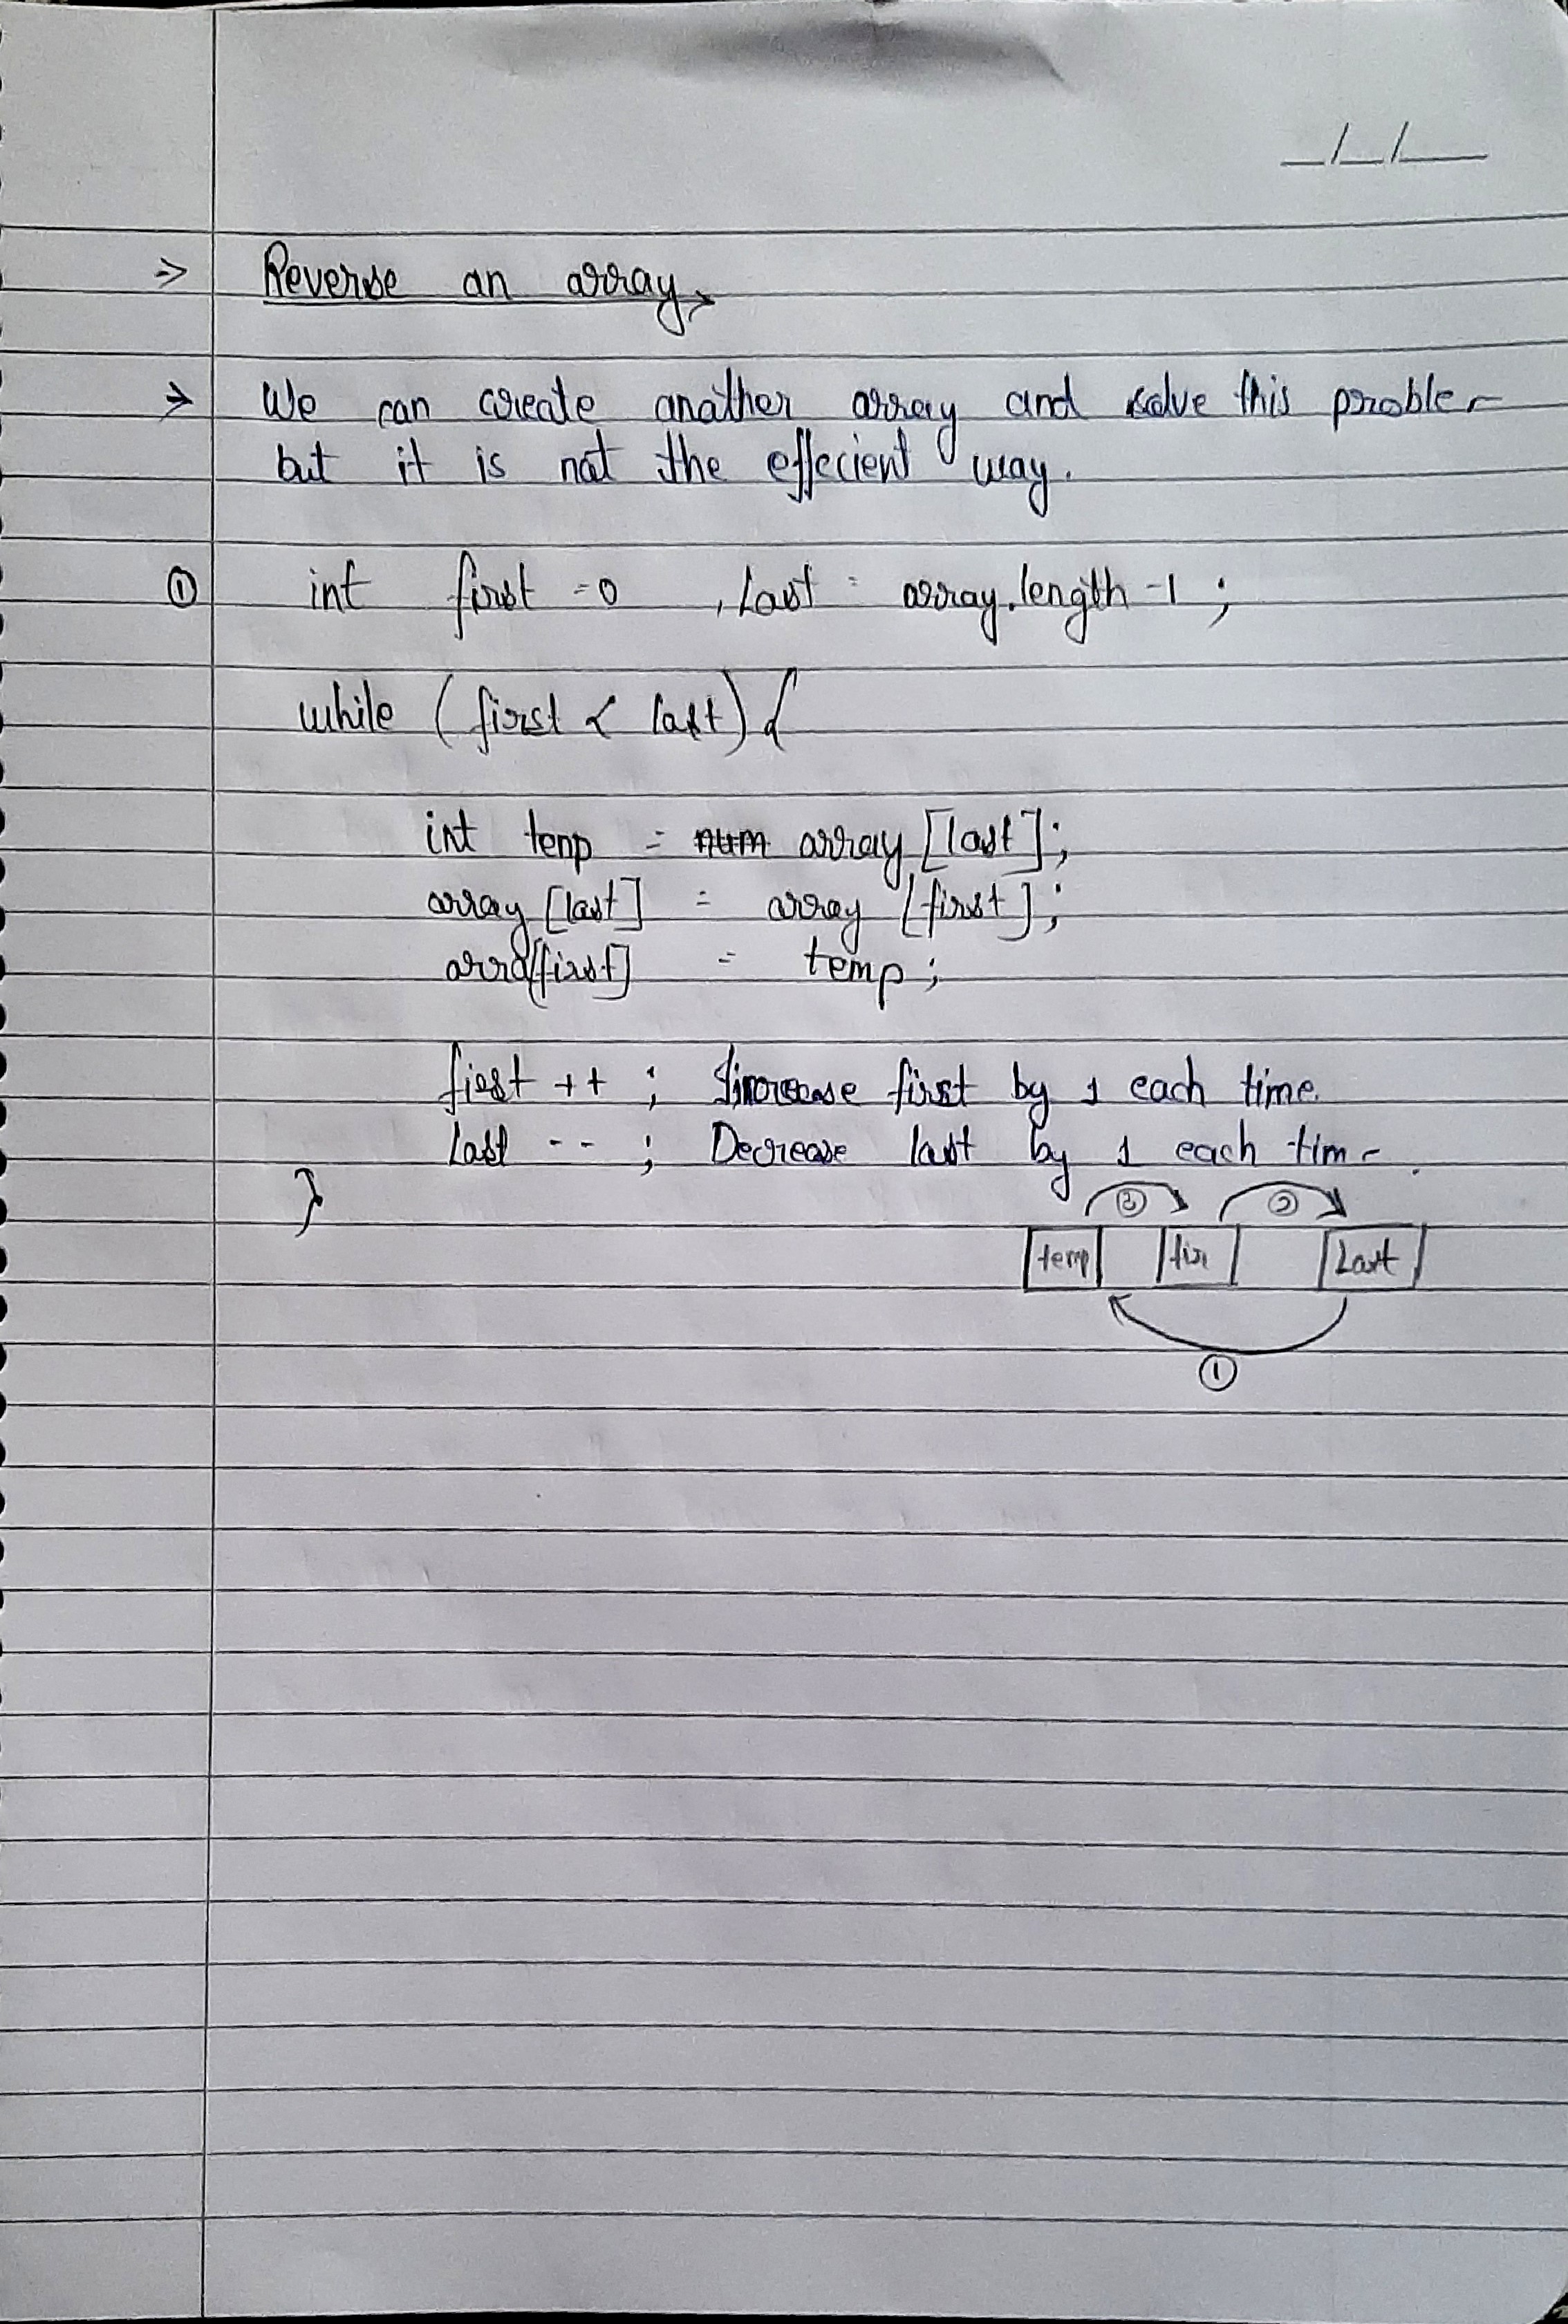 _/_/__
=> Reverse an array
=> We can create anather array and solve this proble
but it is not the effecient way.
① int first =0 , last = array.length -1 ;
while (first < last) {
int temp = num array [last];
array [last] = array [first];
arra[first] = temp;
first ++ ; increase first by 1 each time.
last -- ; Decrease last by 1 each time.
}
③ ②
temp fir Last
①